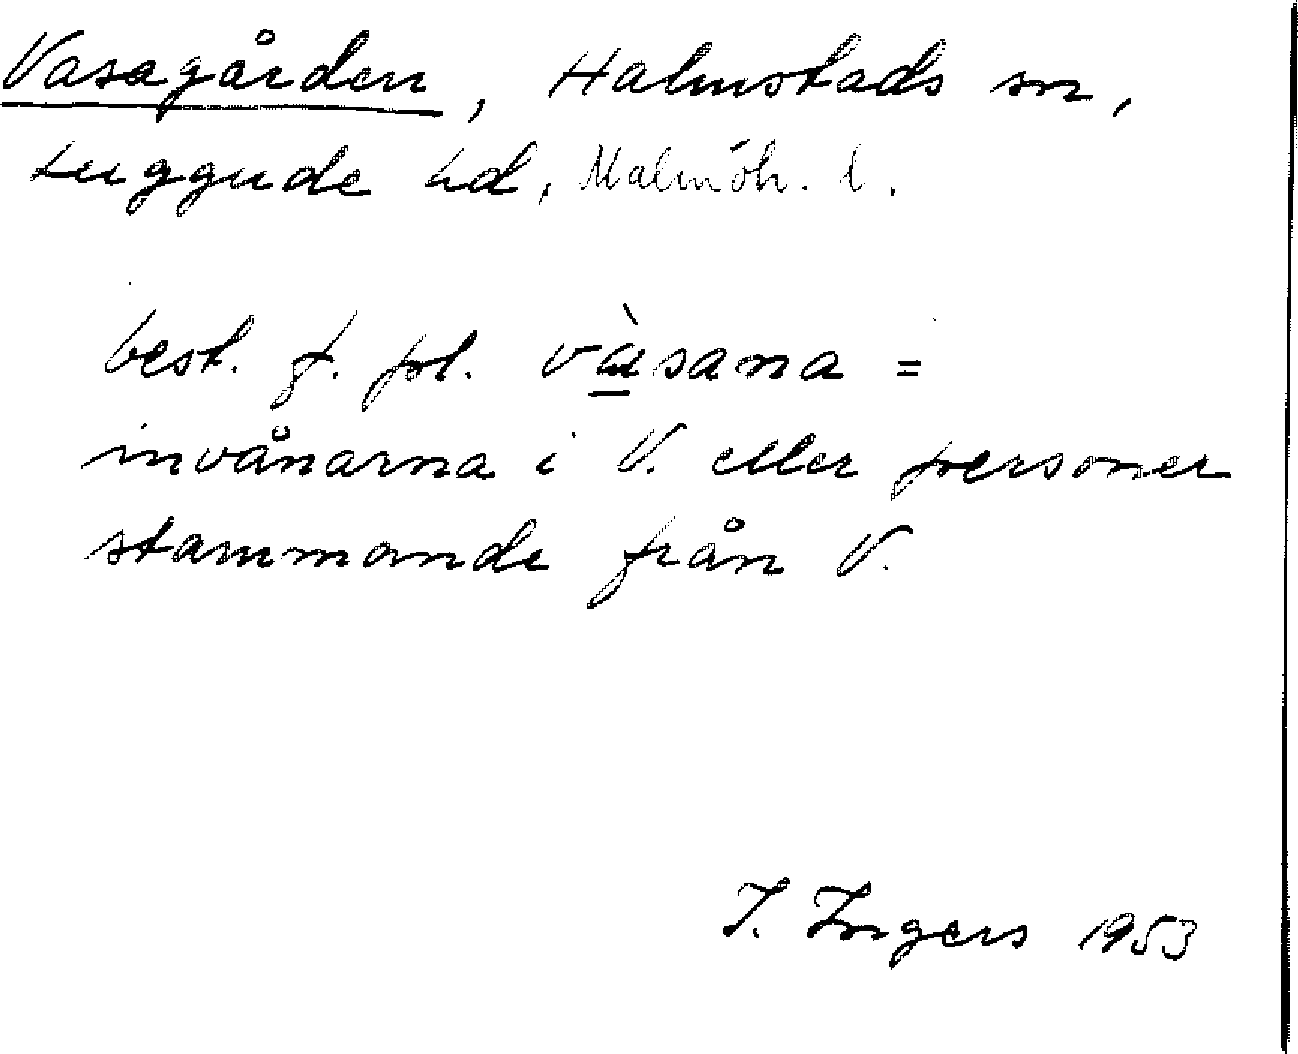 Vasagården, Halmstads sn,
Luggude hd, Malmöh. l.
best. f. pl. =
invånarna i V. eller personer
stammande från V.
I. Ingers 1953